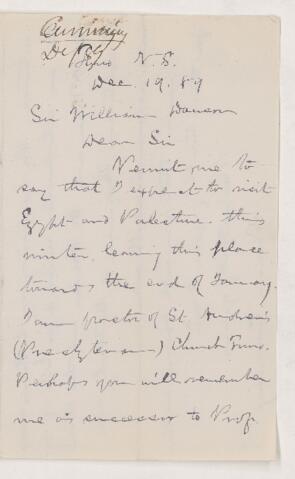 Cumming
Dec 89
Truro N.S.
Dec. 19. 89
Sir William Dawson
Dear Sir
Permit me to
say that I expect to visit
Egypt and Palestine this
winter, leaving this place
towards the end of January.
I am pastor of St. Andrew's
(Presbyterian) Church Truro.
Perhaps you will remember
me as successor to Prof.